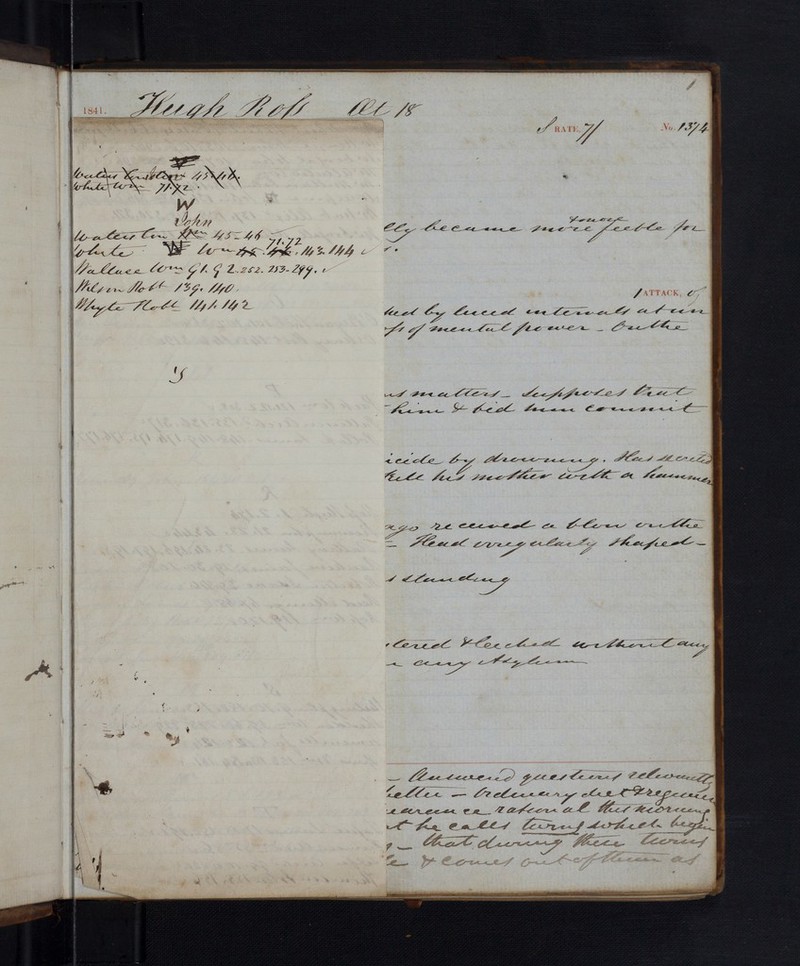 1
1841. Hugh Ross Æt 18
RATE, 7/ No. 1374
Waters 45.46.
White Wm 71.72.
W
John
Waterston 45-46
White W Wm 71.72 143.144
Wallace Wm 91.92.252.253.299.
Wilson Robt 139.140.
Whyte Robt 141.142
lly became more feeble for
ATTACK,
ked by lucid intervals
of mental power - On the
us matters - Supposes that
him & bid him commit
icide by drowning. Has
kill his mother with a hammer
ago received a blow on the
- Head irregularly shaped -
standing
tered & leeched without any
any Asylum
- Answered questions relevantly
better - Ordinary diet & regimen
earance rational this morning
t he calls turns which begin
- that during these turns
& comes out of them as